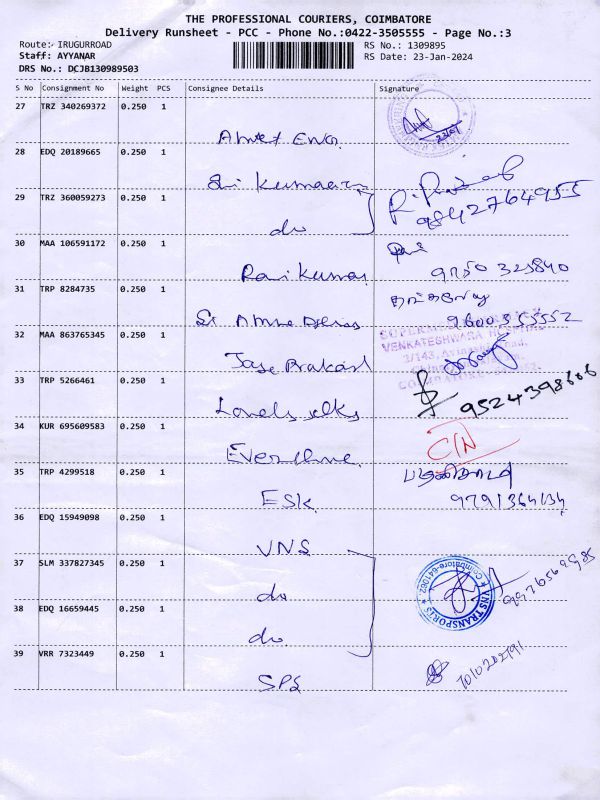 THE PROFESSIONAL COURIERS, COIMBATORE
Delivery Runsheet - PCC - Phone No.:0422-3505555 - Page No.:3
Route: IRUGURROAD RS No.: 1309895
Staff: AYYANAR RS Date: 23-Jan-2024
DRS No.: DCJB130989503
S No Consignment No Weight PCS Consignee Details Signature
27 TRZ 340269372 0.250 1
28 EDQ 20189665 0.250 1
Sri
29 TRZ 360059273 0.250 1
9842764955
do
30 MAA 106591172 0.250 1
Ravi Kumar 9750 325840
31 TRP 8284735 0.250 1
9600355552
32 MAA 863765345 0.250 1
VENKATESHWARA
3/143,
Jaya Prakash
33 TRP 5266461 0.250 1
Lovely silks 9524398606
34 KUR 695609583 0.250 1
C/N
35 TRP 4299518 0.250 1
ESK 9791364134
36 EDQ 15949098 0.250 1
VNS
37 SLM 337827345 0.250 1
VNS TRANSPORTS Coimbatore-641062
do
38 EDQ 16659445 0.250 1
do
39 VRR 7323449 0.250 1
SPS